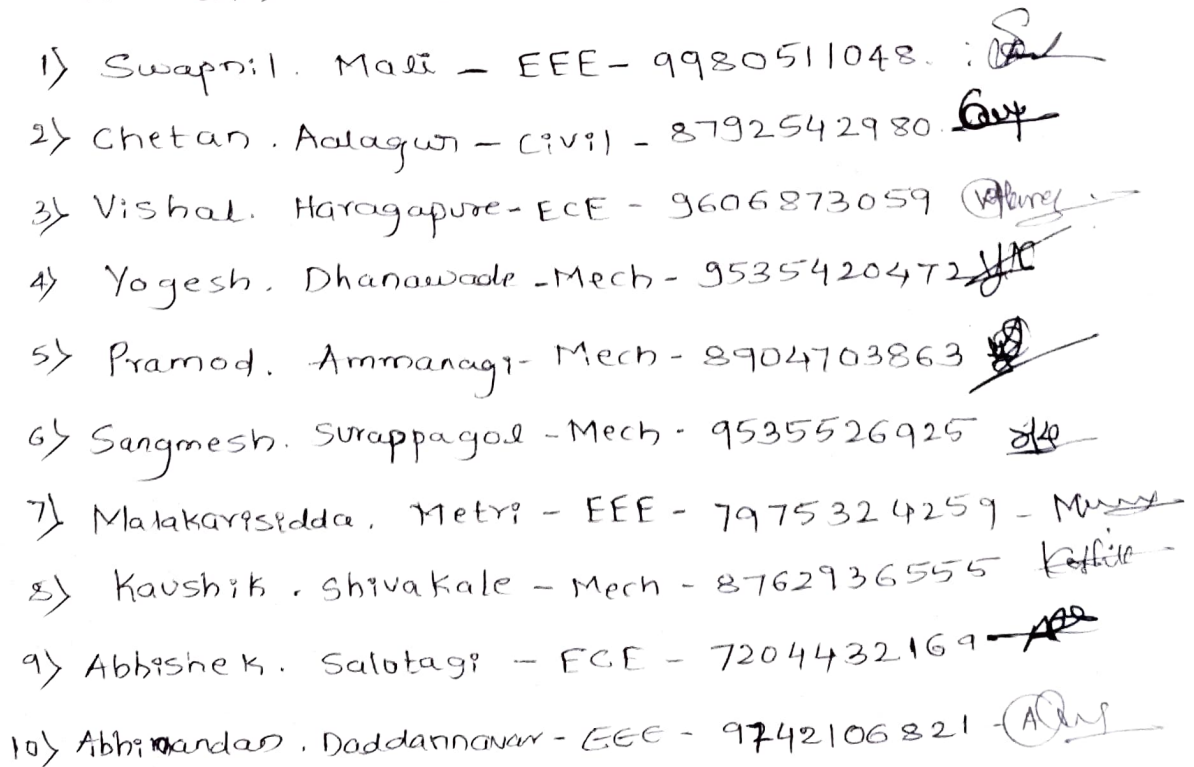 1) Swapnil. Mali - EEE - 9980511048.
2) Chetan. Aalagur - Civil - 8792542980.
3) Vishal. Haragapure - ECE - 9606873059
4) Yogesh. Dhanawade - Mech - 9535420472
5) Pramod. Ammanagi - Mech - 8904703863
6) Sangmesh. Surappagol - Mech - 9535526925
7) Malakarisidda. Metri - EEE - 7975324259 -
8) Kaushik. Shivakale - Mech - 8762936555
9) Abhishek. Salotagi - ECE - 7204432169
10) Abhinandan. Daddannavar - EEE - 9742106821